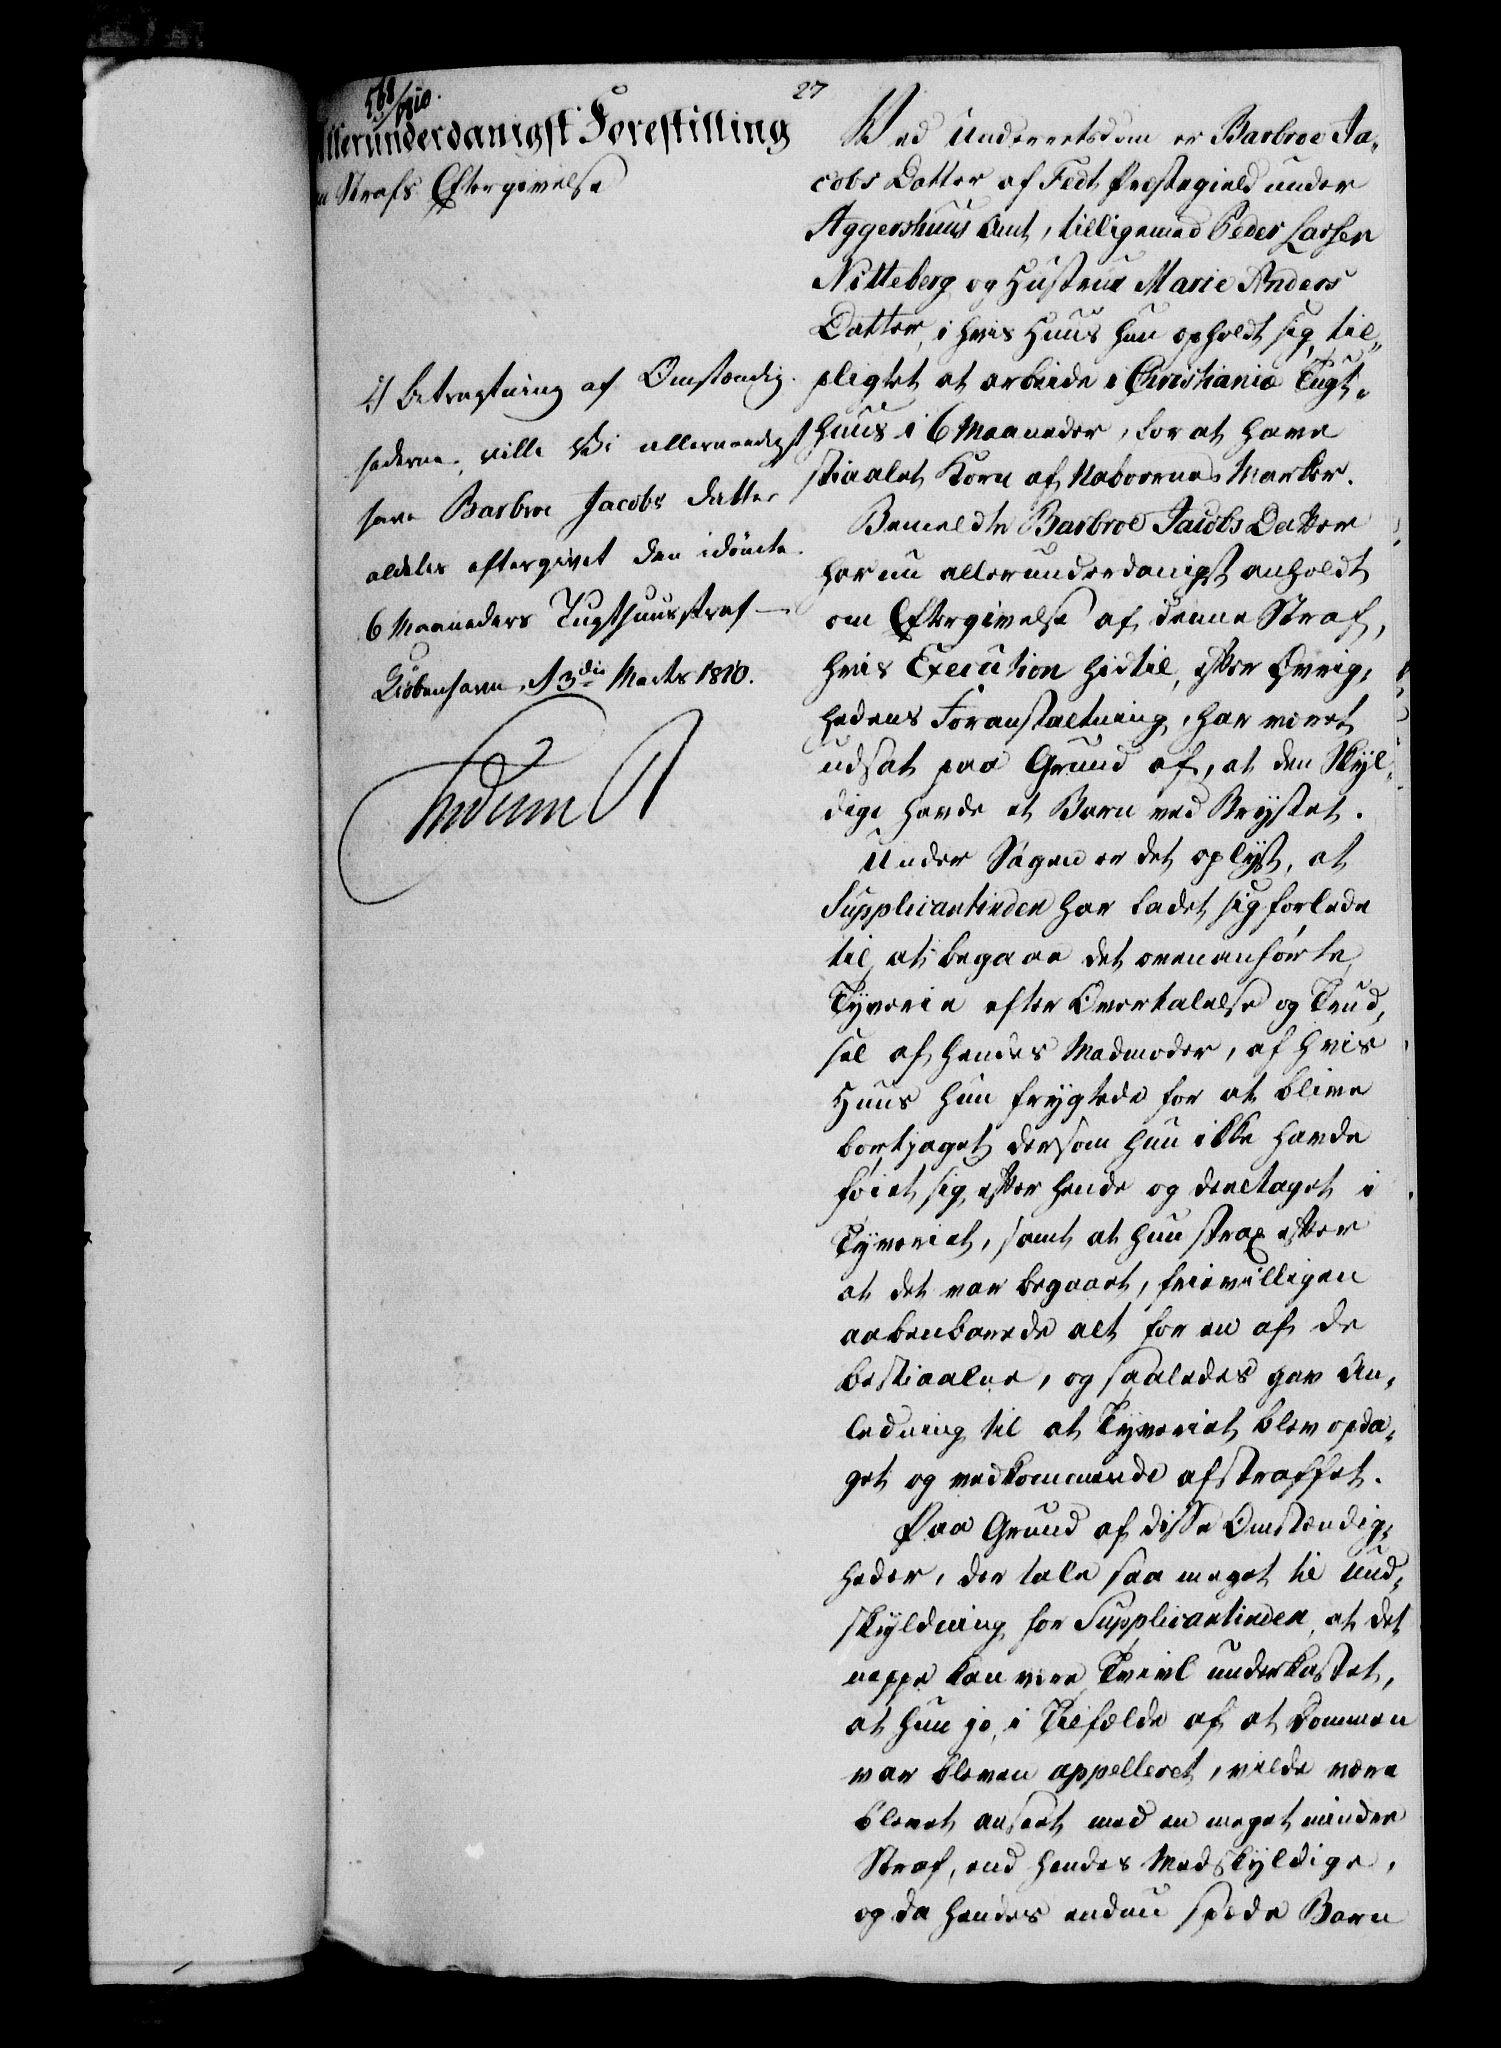 568/1810.
27
Allerunderdanigst Forestilling
Strafs Eftergivelse
I betragtning af Omstændig-
hederne, ville Vi allernaadigst
have Barbroe Jacobs Datter
aldeles eftergivet den idömte
6 Maaneders Tugthuusstraf –
Kiöbenhavn, d 3die Marts 1810.
Frederik R
Ved Underretsdom er Barbroe Ja-
cobs Datter af Fedt Præstegield under
Aggershuus Amt, tilligemed Peder Larsen
Nitteberg og Hustrue Marie Anders
Datter, i hvis Huus hun opholdt sig, til-
pligtet at arbeide i Christiania Tugt-
huus i 6 Maaneder, for at have
stiaalet Korn af Naboernes Marker.
Bemeldte Barbroe Jacobs Datter
har nu allerunderdanigst anholdt
om Eftergivelse af denne Straf,
hvis Execution hidtil, efter Øvrig-
hedens Foranstaltning, har været
udsat paa Grund af, at den Skyl-
dige havde et Barn ved Brystet.
Under Sagen er det oplyst, at
Supplicantinden har ladet sig forlede
til at begaae det ovenanförte
Tyverie efter Overtalelse og Trud-
sel af hendes Madmoder, af hvis
Huus hun frygtede for at blive
bortjaget dersom hun ikke havde
föiet sig efter hende og deeltaget i
Tyveriet, samt at hun strax efter
at det var begaaet, frievilligen
aabenbarede alt for en af de
bestiaalne, og saaledes gav An-
ledning til at Tyveriet blev opda-
get og vedkommende afstraffet.
Paa Grund af disse Omstændig-
heder, der tale saa meget til Und-
skyldning for Supplicantinden, at det
neppe kan være Tvivl underkastet,
at hun jo, i Tilfælde af at Dommen
var bleven appelleret, vilde være
blevet anseet med en meget mindre
Straf, end hendes Medskyldige,
og da hendes endnu spæde Barn